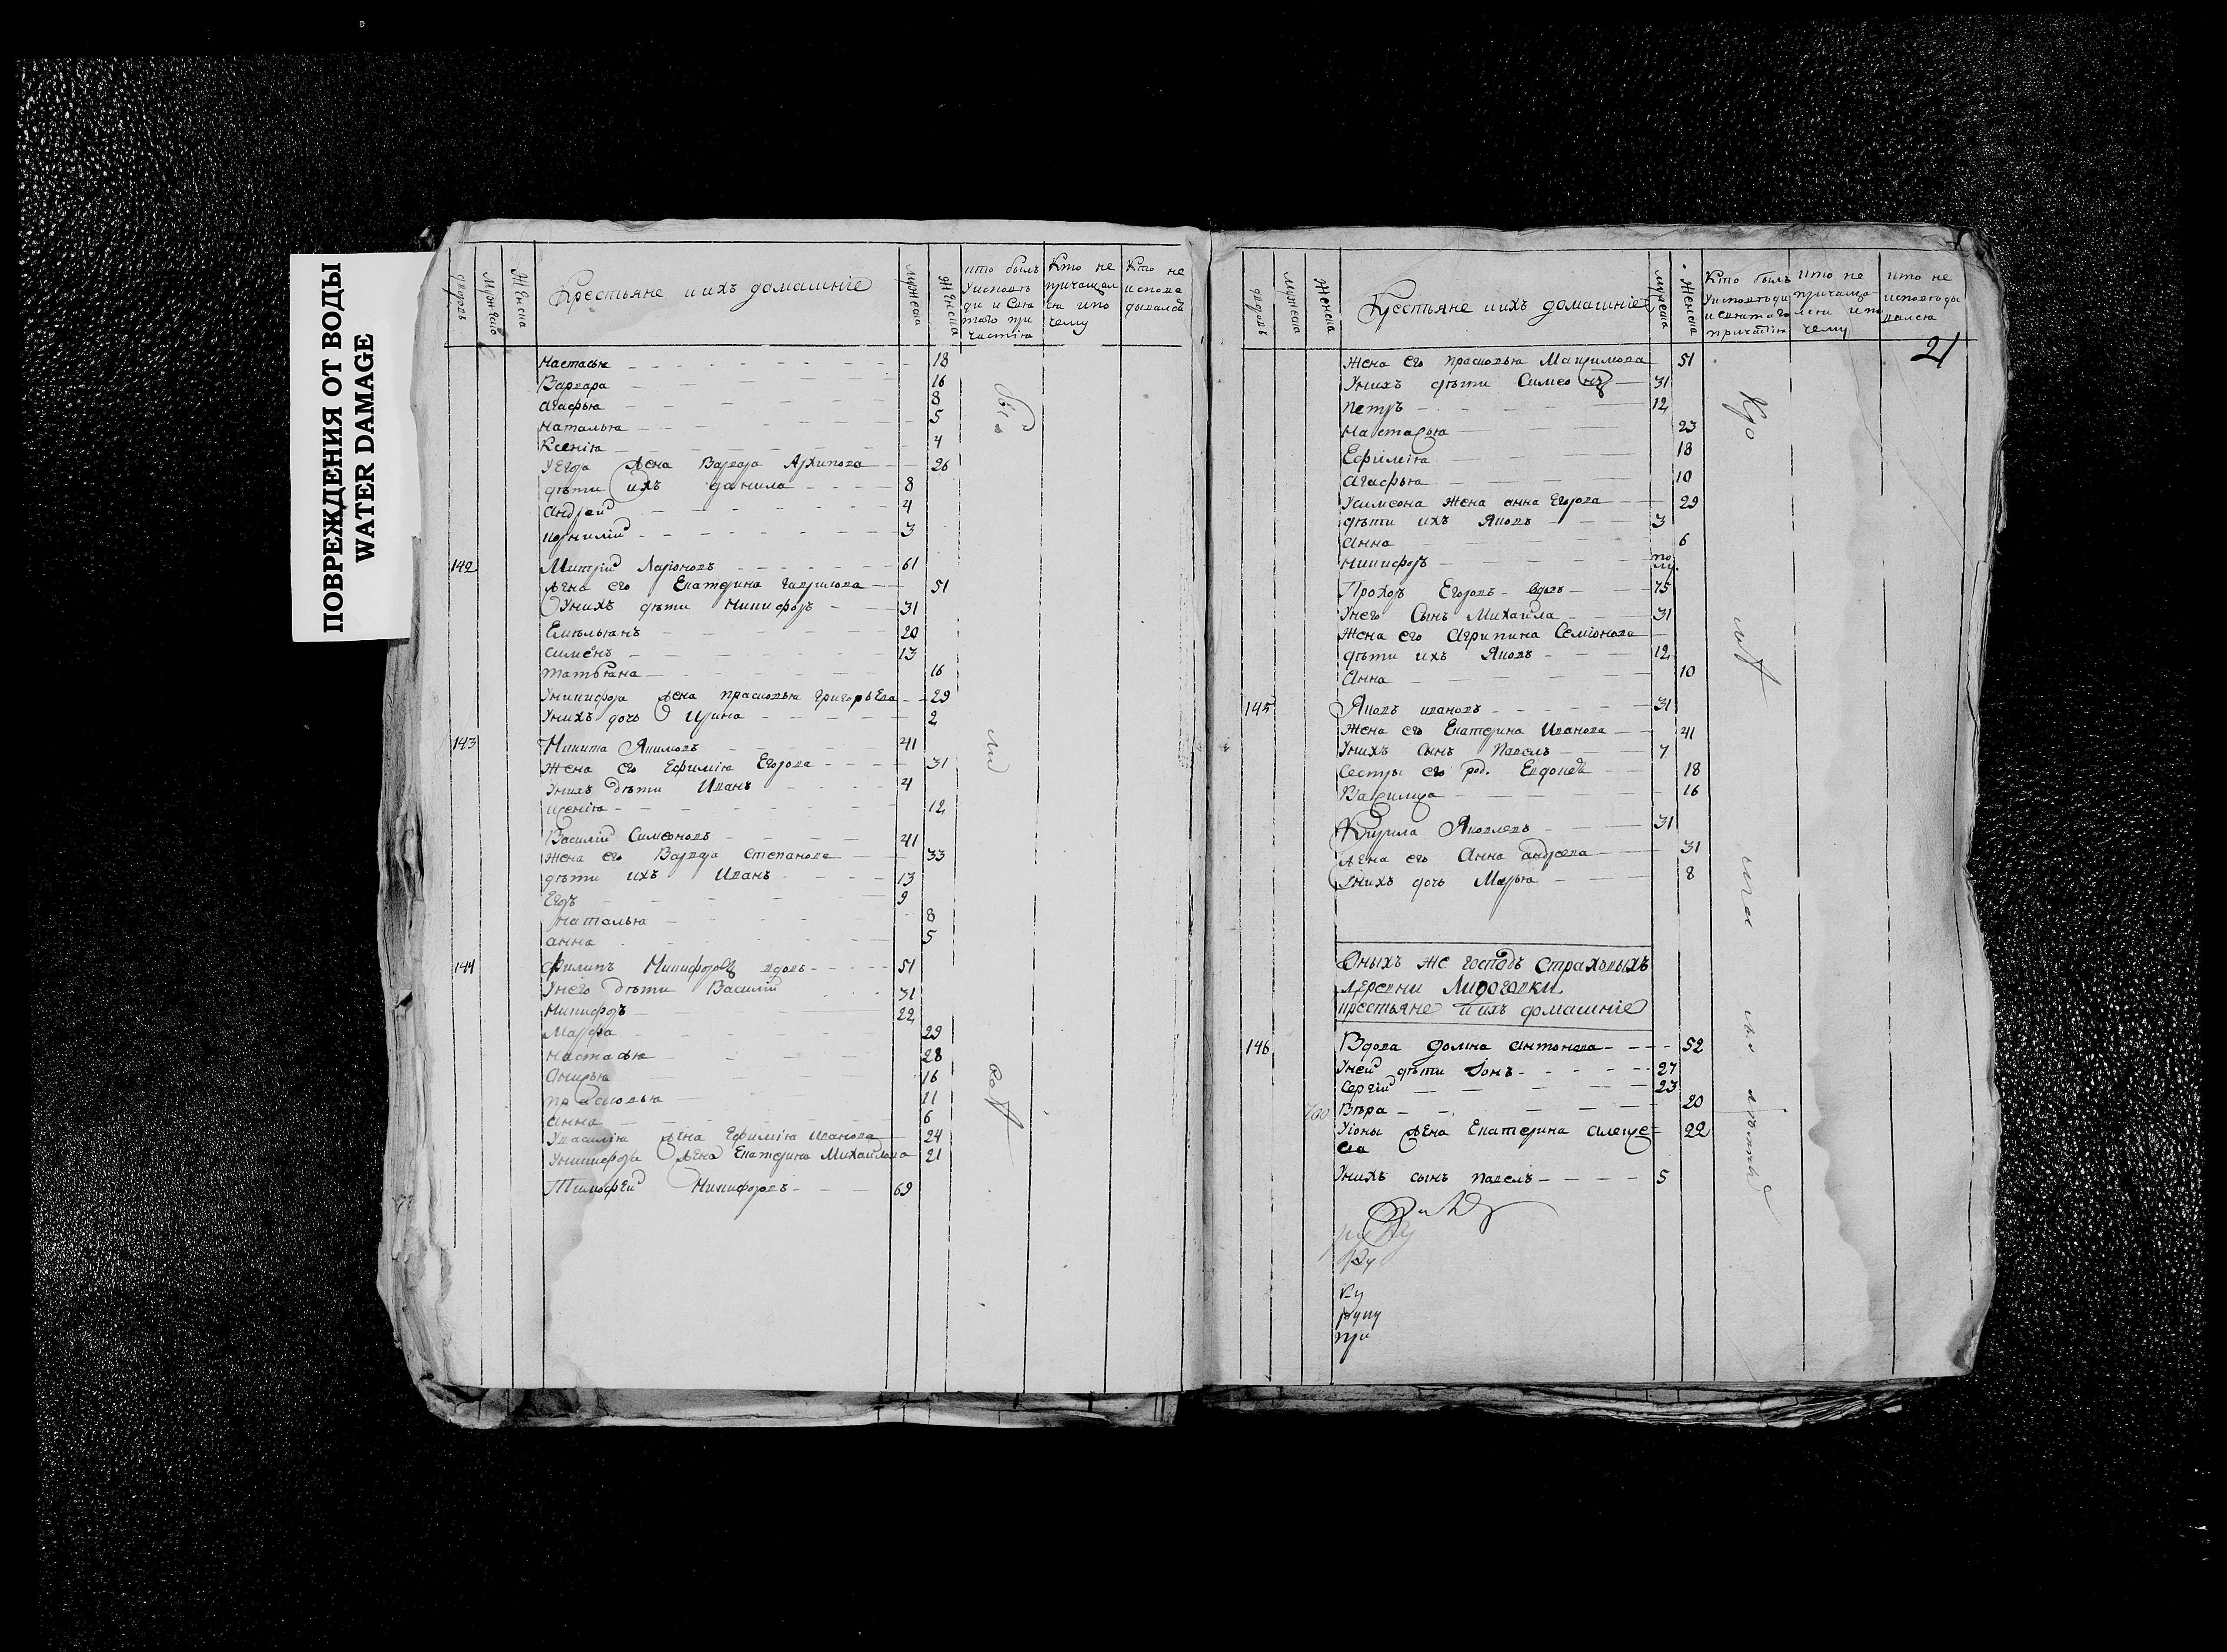 ПОВРЕЖДЕНИЯ ОТ ВОДЫ
WATER DAMAGE
дворовъ
мужеска
Женска
Крестьяне и ихъ домашнїе
мужеска
Женска
кто былъ
у исповѣ
ди и свя
таго при
частїя
Кто не
причащал
ся и по
чему
Кто не
исповѣ
дывался
Настасья 18
Варвара 16
Агафья 8
Наталья 5
Ксенїя 4
У Егора жена Варвара Архипова 26
дѣти ихъ данила 8
Андрей 4
корнилїй 3
142 Митрїй Ларїоновъ 61
жена его Екатерина гаврилова 51
У нихъ дѣти Никифоръ 31
Емельянъ 20
Симёнъ 13
татьяна 16
У никифора жена прасковья григорьева 29
У нихъ дочь Ирина 2
143 Никита Якимовъ 41
Жена его Ефимїя Егорова 31
У нихъ дѣти Иванъ 4
ксенїя 12
Василїй Симеоновъ 41
Жена его Варвара степанова 33
дѣти ихъ Иванъ 13
Егоръ 9
Наталья 8
анна 5
144 Филипъ Никифоровъ вдовъ 51
У него дѣти Василїй 31
Никифоръ 22
Марфа 29
Настасья 28
Анисья 16
прасковья 11
анна 6
У василїя жена Ефимїя Иванова 24
У никифора жена Екатерина Михайлова 21
Тимофей Никифоровъ 69
21
дворовъ
мужеска
Женска
Крестьяне и ихъ домашнїе
мужеска
Женска
Кто былъ
у исповѣди
и святаго
причастїя
кто не
причаща
лся и по
чему
кто не
исповѣды
вался
Жена его прасковья Максимова 51
У нихъ дѣти Симеонъ 31
петръ 12
Настасья 23
Ефимїя 18
Агафья 10
У симеона жена анна Егорова 29
дѣти ихъ Яковъ 3
Анна 6
никифоръ полу.
Прохоръ Егоровъ вдовъ 75
У него сынъ Михаила 31
Жена его Агрипина Семїонова
дѣти ихъ Яковъ 12
Анна 10
145 Яковъ ивановъ 31
Жена его Екатерина Иванова 41
У нихъ сынъ Павелъ 7
Сестры его род. Евдокея 18
Василиса 16
Кирила Яковлевъ 31
жена его Анна андреева 31
У нихъ дочь Марья 8
Оныхъ же господъ Страховыхъ
деревни
крестьяне и ихъ домашнїе
146 Вдова домна антонова 52
У ней дѣти Їонъ 27
Сергїй 23
Вѣра 20
У їоны жена Екатерина алеѯе= 22
ева
У нихъ сынъ павелъ 5
Ру
Ку
руку
при